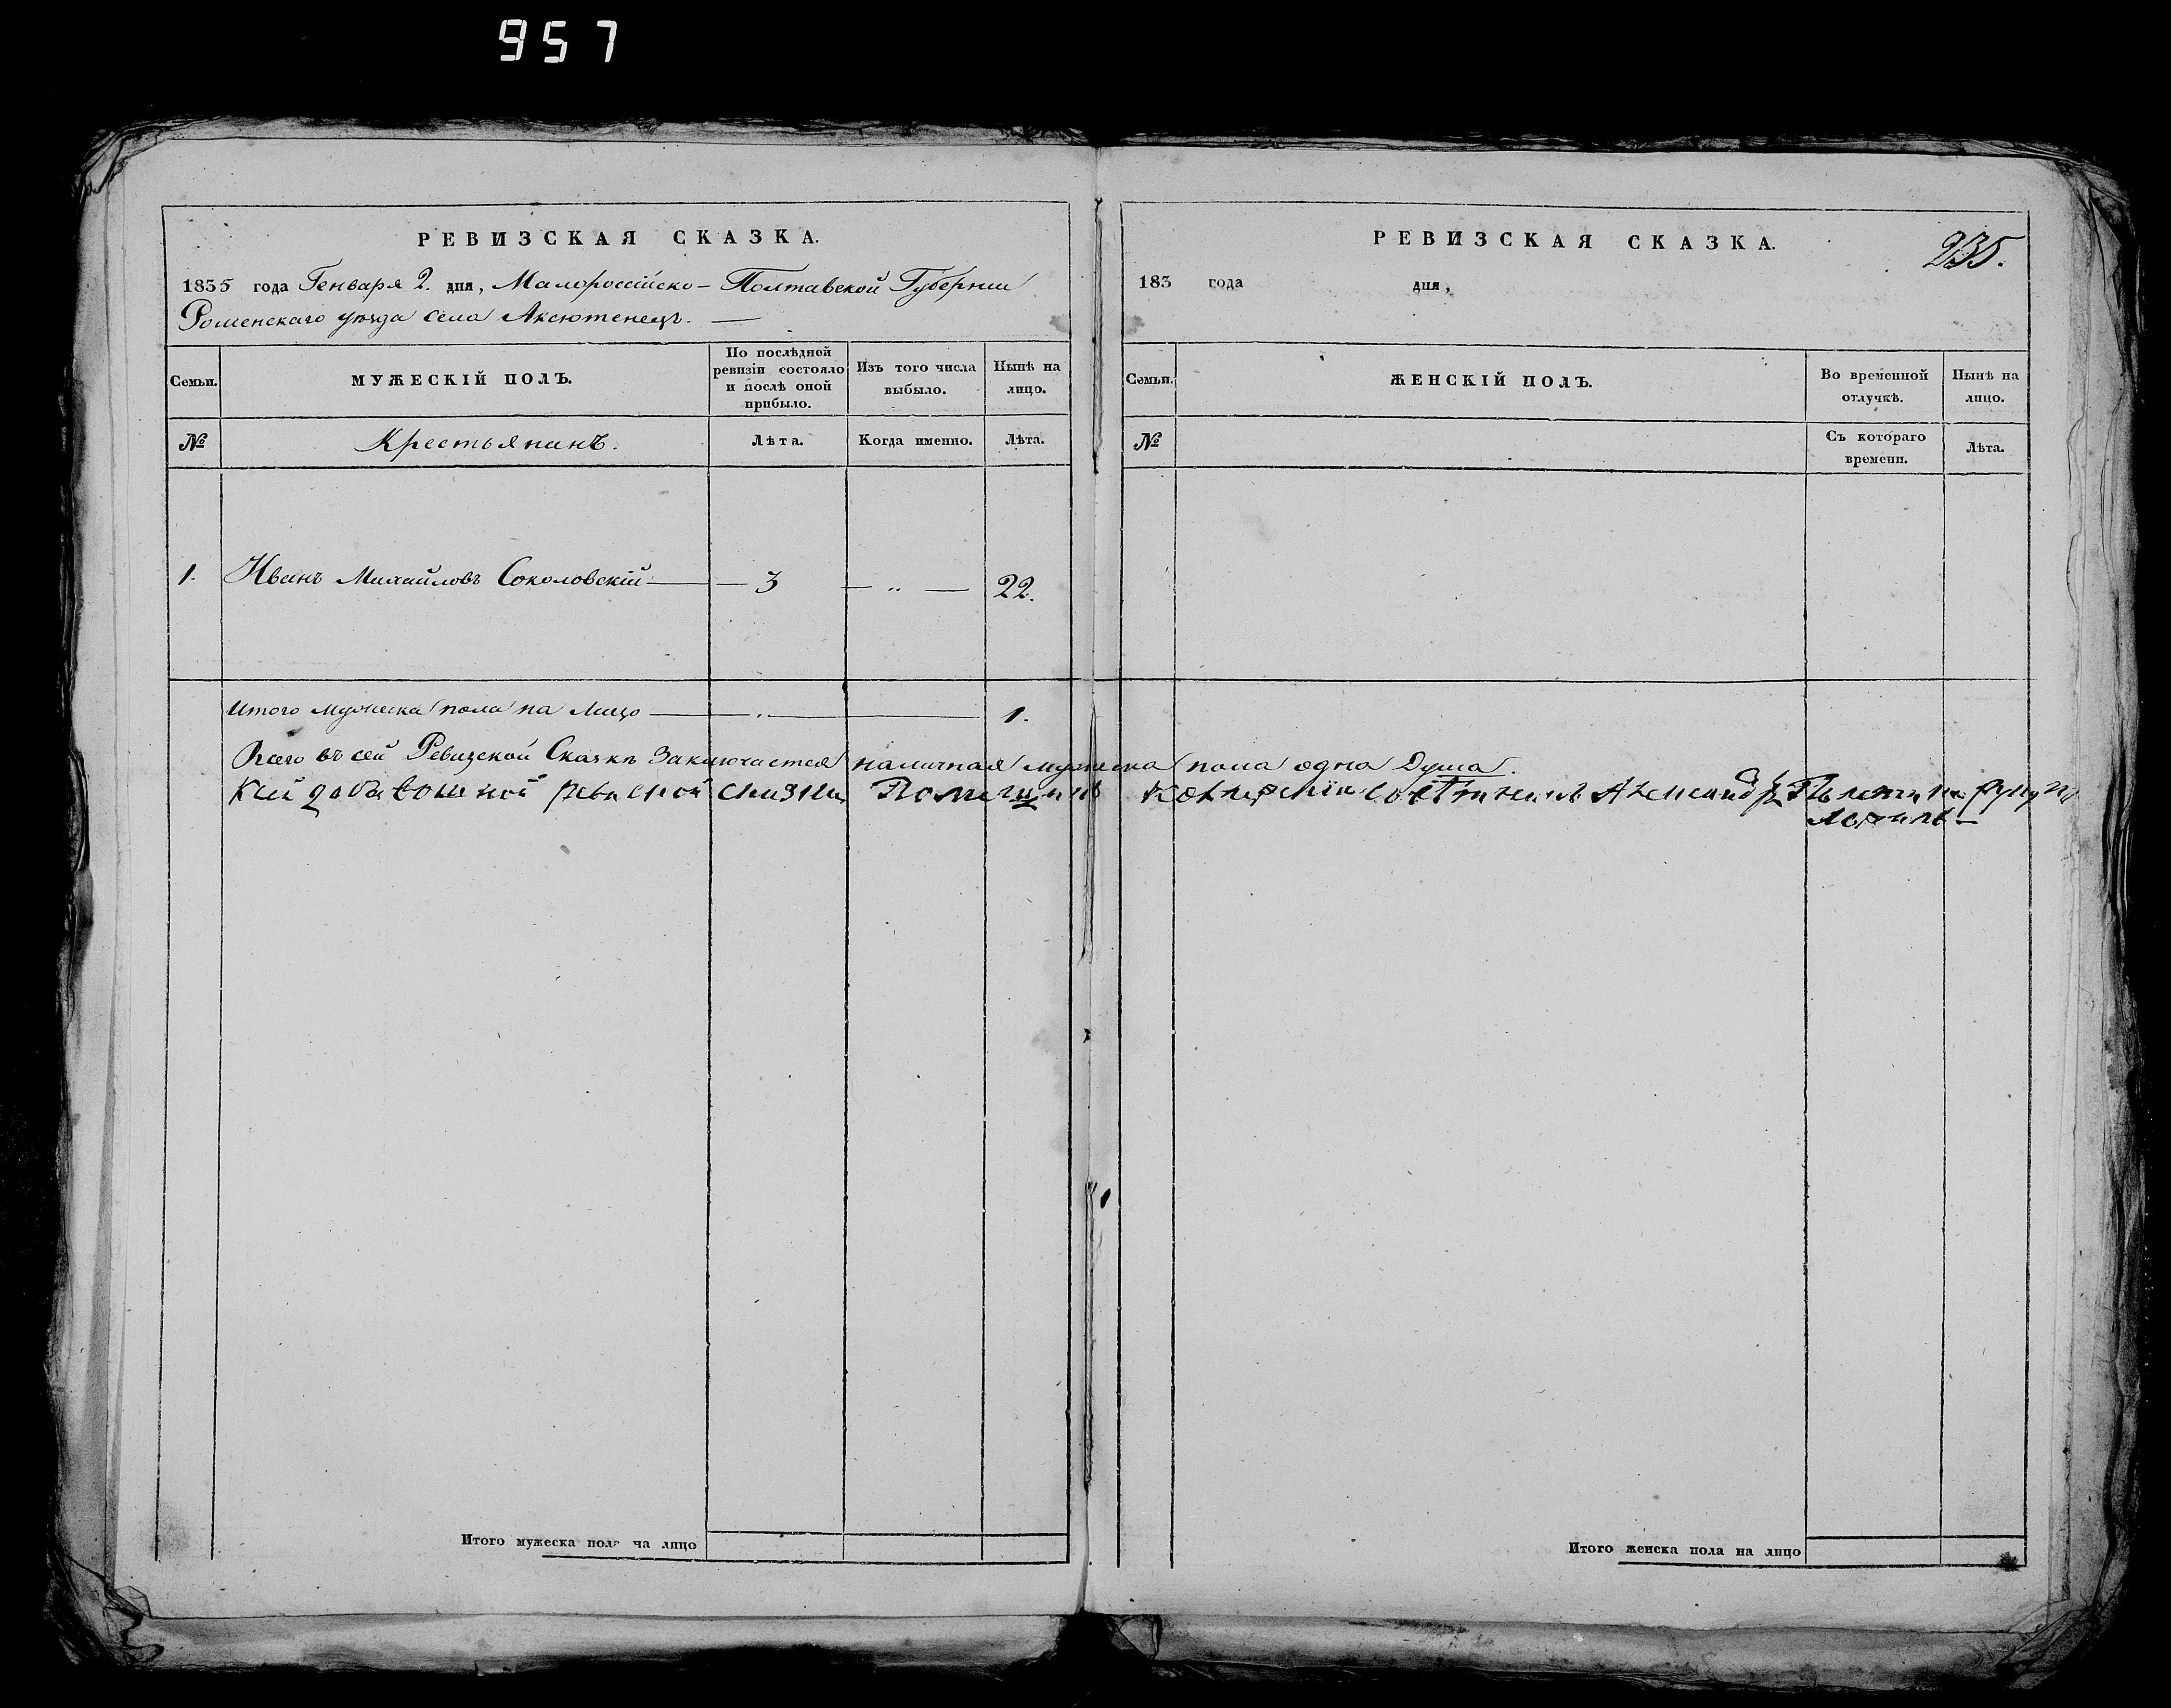 957
РЕВИЗСКАЯ СКАЗКА.
1835 года Генваря 2. дня, Малороссійско-Полтавской Губерніи
Роменскаго уѣзда села Аксютенецъ. —
Семьи.
МУЖЕСКІЙ ПОЛЪ.
По послѣдней ревизіи состояло и послѣ оной прибыло.
Изъ того числа выбыло.
Нынѣ на лицо.
№
Крестьянинъ.
Лѣта.
Когда именно.
Лѣта.
1. Иванъ Михайловъ Соколовскій — 3 — „ — 22.
Итого мужеска пола на лицо — 1.
Всего въ сей Ревизской Сказкѣ заключается наличная мужеска пола одна Душа.
Ксей ревиской Александр
Итого мужеска пола на лицо
РЕВИЗСКАЯ СКАЗКА.
235.
183 года дня,
Семьи.
ЖЕНСКІЙ ПОЛЪ.
Во временной отлучкѣ.
Нынѣ на лицо.
№
Съ котораго времени.
Лѣта.
Итого женска пола на лицо